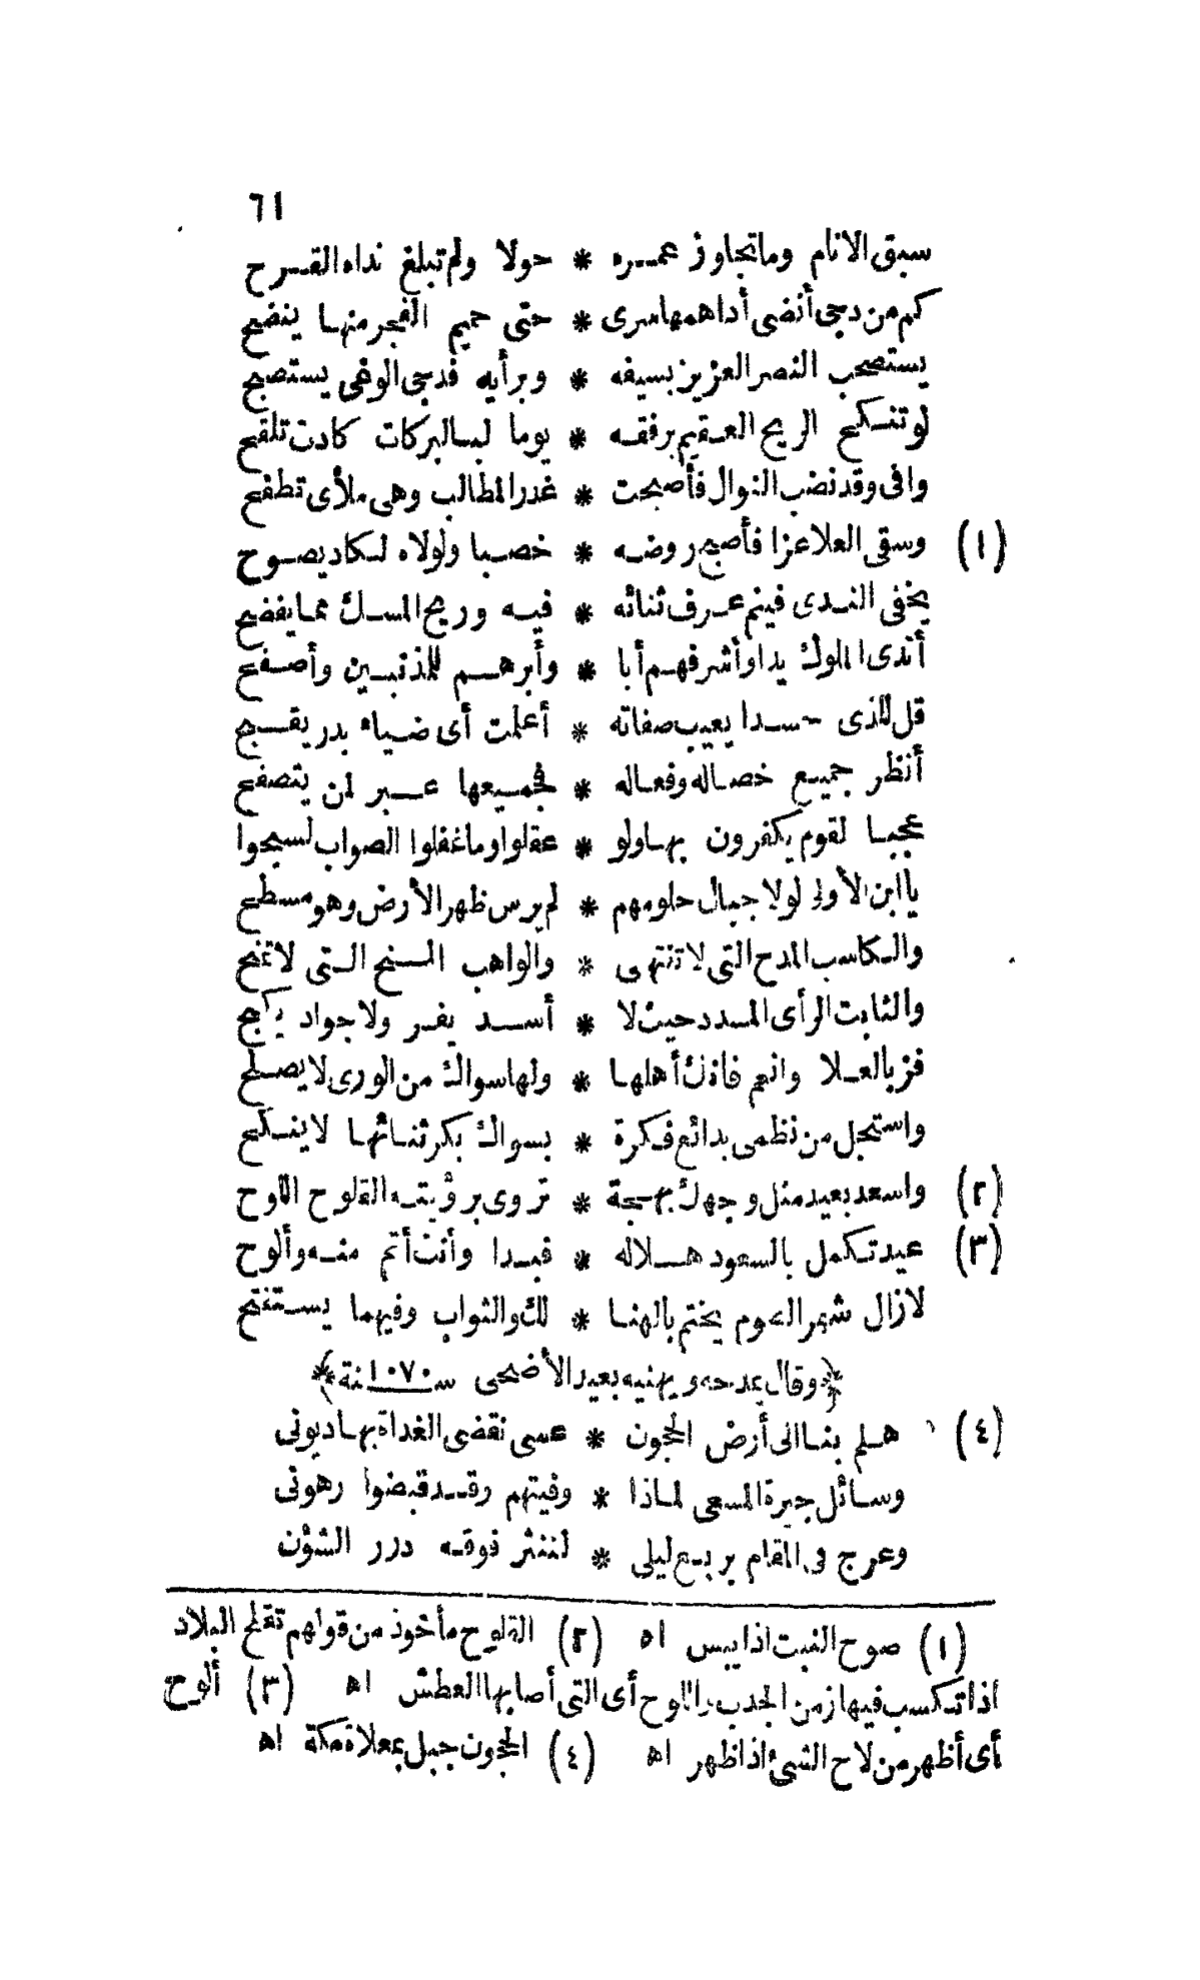 ٦١
سبق الانام وما تجاوز عمره * حولا ولم تبلغ نداه القرح
كم من دجى أنضى أداهمها سرى * حتى حميم الفجر منها ينضح
يستصحب النصر العزيز بسيفه * وبرأيه فدجى الوغى يستصبح
لو تنكح الريح العقيم برفقه * يوما لبالبركات كادت تلقح
وافى وقد نضب النوال فأصبحت * غدر المطالب وهى ملأى تطفح
(١) وسقى العلا عزا فأصبح روضه * خصبا ولولاه لكاد يصوح
يخفى الندى فينم عرف ثنائه * فيه وريح المسك مما يفضح
أندى الملوك يدا وأشرفهم أبا * وأبرهم للمذنبين وأصفح
قل للذى حسدا يعيب صفاته * أعلمت أى ضياء بدر يقبح
أنظر جميع خصاله وفعاله * فجميعها عبر لمن يتصفح
عجبا لقوم يكفرون بها ولو * عقلوا وما غفلوا الصواب لسبحوا
يا ابن الأولى لولا جبال حلومهم * لم يرس ظهر الأرض وهو مسطح
والكاسب المدح التى لا تنتهى * والواهب المنح التى لا تمنح
والثابت الرأى المسدد حيث لا * أسد يفر ولا جواد يكبح
فز بالعلا وانعم فانك أهلها * ولها سواك من الورى لا يصلح
واستجل من نظمى بدائع فكرة * بسواك بكر ثنائها لا ينكح
(٢) واسعد بعيد مثل وجهك بهجة * تروى برؤيته القلوح اللوح
(٣) عيد تكمل بالسعود هلاله * فبدا وأنت أتم منه وألوح
لازال شهر الصوم يختم بالهنا * لك والثواب وفيهما يستفتح
﴿وقال يمدحه ويهنيه بعيد الأضحى سنة ١٠٧٠﴾
(٤) هلم بنا الى أرض الحجون * عسى نقضى الغداة بها ديونى
وسائل جيرة المسعى لماذا * وفيتهم وقد قبضوا رهونى
وعرج فى المقام بربع ليلى * لننثر فوقه درر الشؤن
(١) صوح النبت اذا يبس اه (٢) القلوح مأخوذ من قولهم تقلح البلاد
اذا تكسب فيها زمن الجدب واللوح أى التى أصابها العطش اه (٣) ألوح
أى أظهر من لاح الشئ اذا ظهر اه (٤) الحجون جبل بمعلاة مكة اه